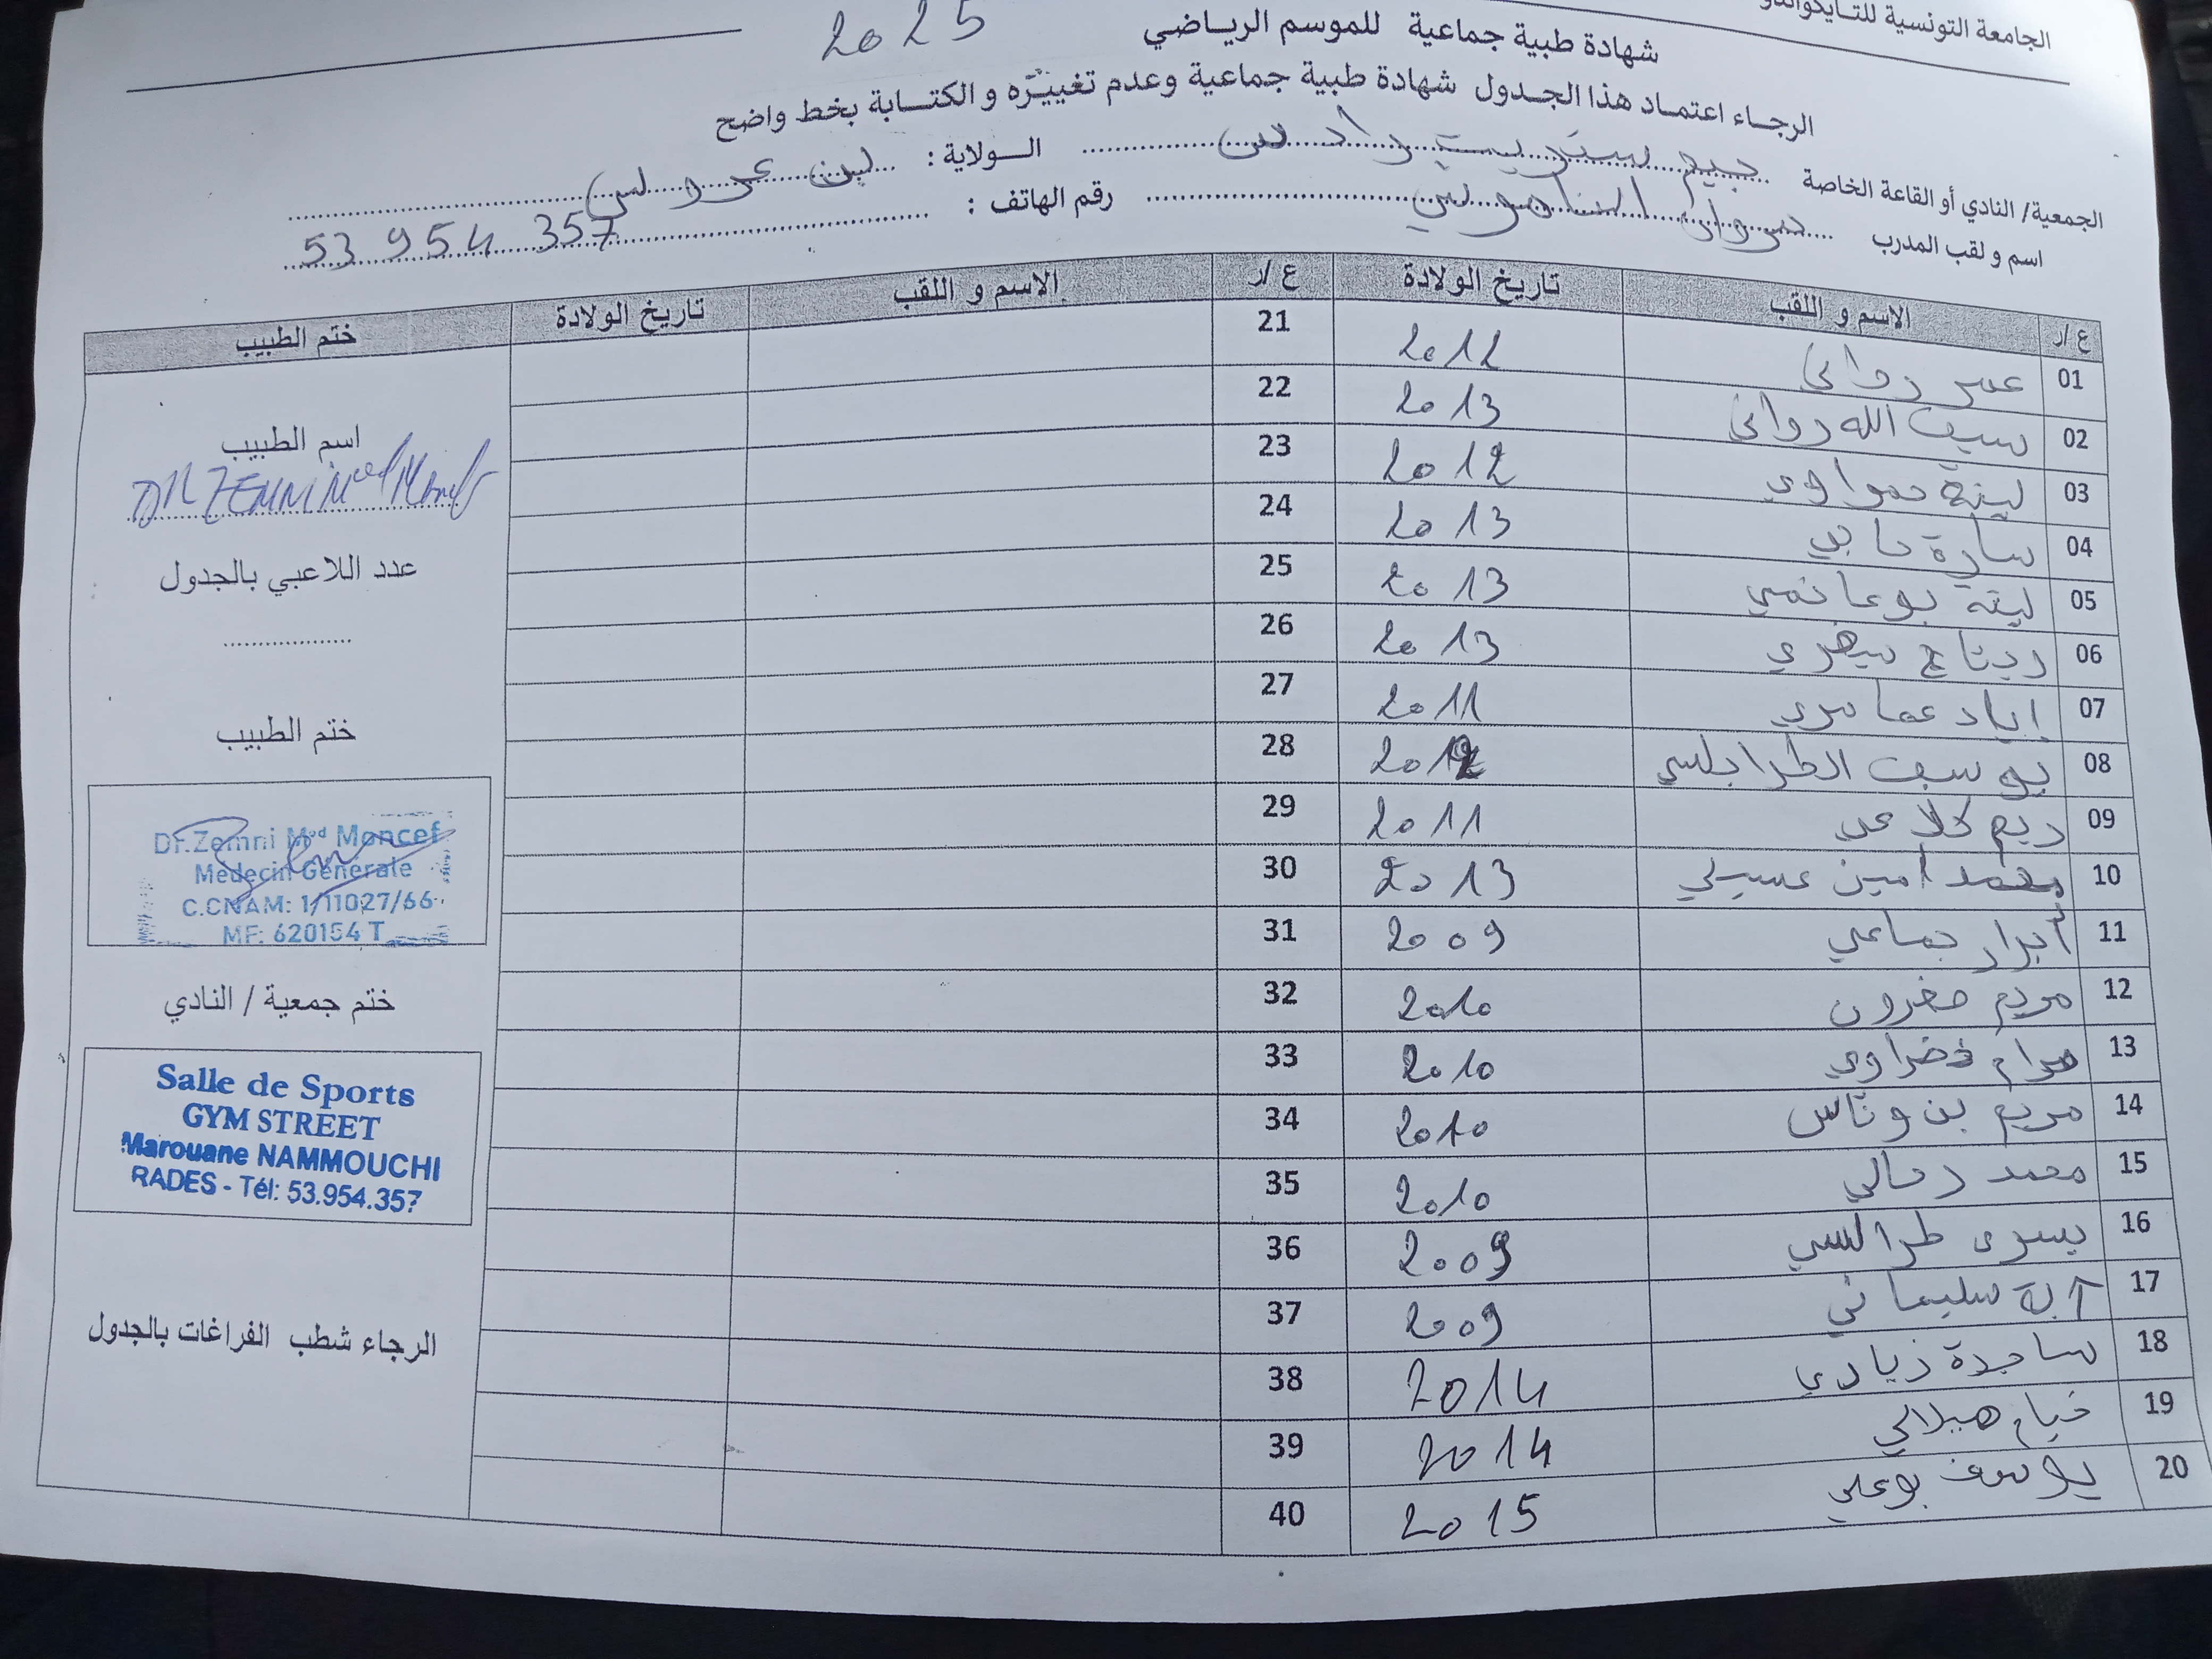 الجامعة التونسية للتـايكواندو
شهادة طبية جماعية للموسم الرياضي 2025
الرجـاء اعتمـاد هذا الجـدول شهادة طبية جماعية وعدم تغييـره و الكتـابة بخط واضح
الجمعية/ النادي أو القاعة الخاصة جيم ستريت رادس الـولاية : بن عروس
اسم و لقب المدرب مروان النامو شي رقم الهاتف : 53 954 357
ع/ر الاسم و اللقب تاريخ الولادة ع/ر الاسم و اللقب تاريخ الولادة ختم الطبيب
01 عمر رواني 2012 21
02 سيف الله رواني 2013 22
03 لينة حمواوي 2012 23
04 سارة حابي 2013 24
05 لينة بوعانمي 2013 25
06 ريتاج 2013 26
07 إياد عمامري 2011 27
08 يوسف الطرابلسي 2012 28
09 ريم كلاعي 2011 29
10 محمد أمين عسيلي 2013 30
11 أبرار جماعي 2009 31
12 مريم مغرون 2010 32
13 مرام خضراوي 2010 33
14 مريم بن وناس 2010 34
15 محمد رحالي 2010 35
16 يسرى طرابلسي 2009 36
17 آية سليماني 2009 37
18 ساجدة زيادي 2014 38
19 خيام هيلالي 2014 39
20 يوسف بوعلي 2015 40
اسم الطبيب
DR ZEMNI Med Moncef
عدد اللاعبي بالجدول
ختم الطبيب
Dr.Zemni Med Moncef
Médecin Générale
C.CNAM: 1/11027/66
MF: 620154 T
ختم جمعية / النادي
Salle de Sports
GYM STREET
Marouane NAMMOUCHI
RADES - Tél: 53.954.357
الرجاء شطب الفراغات بالجدول